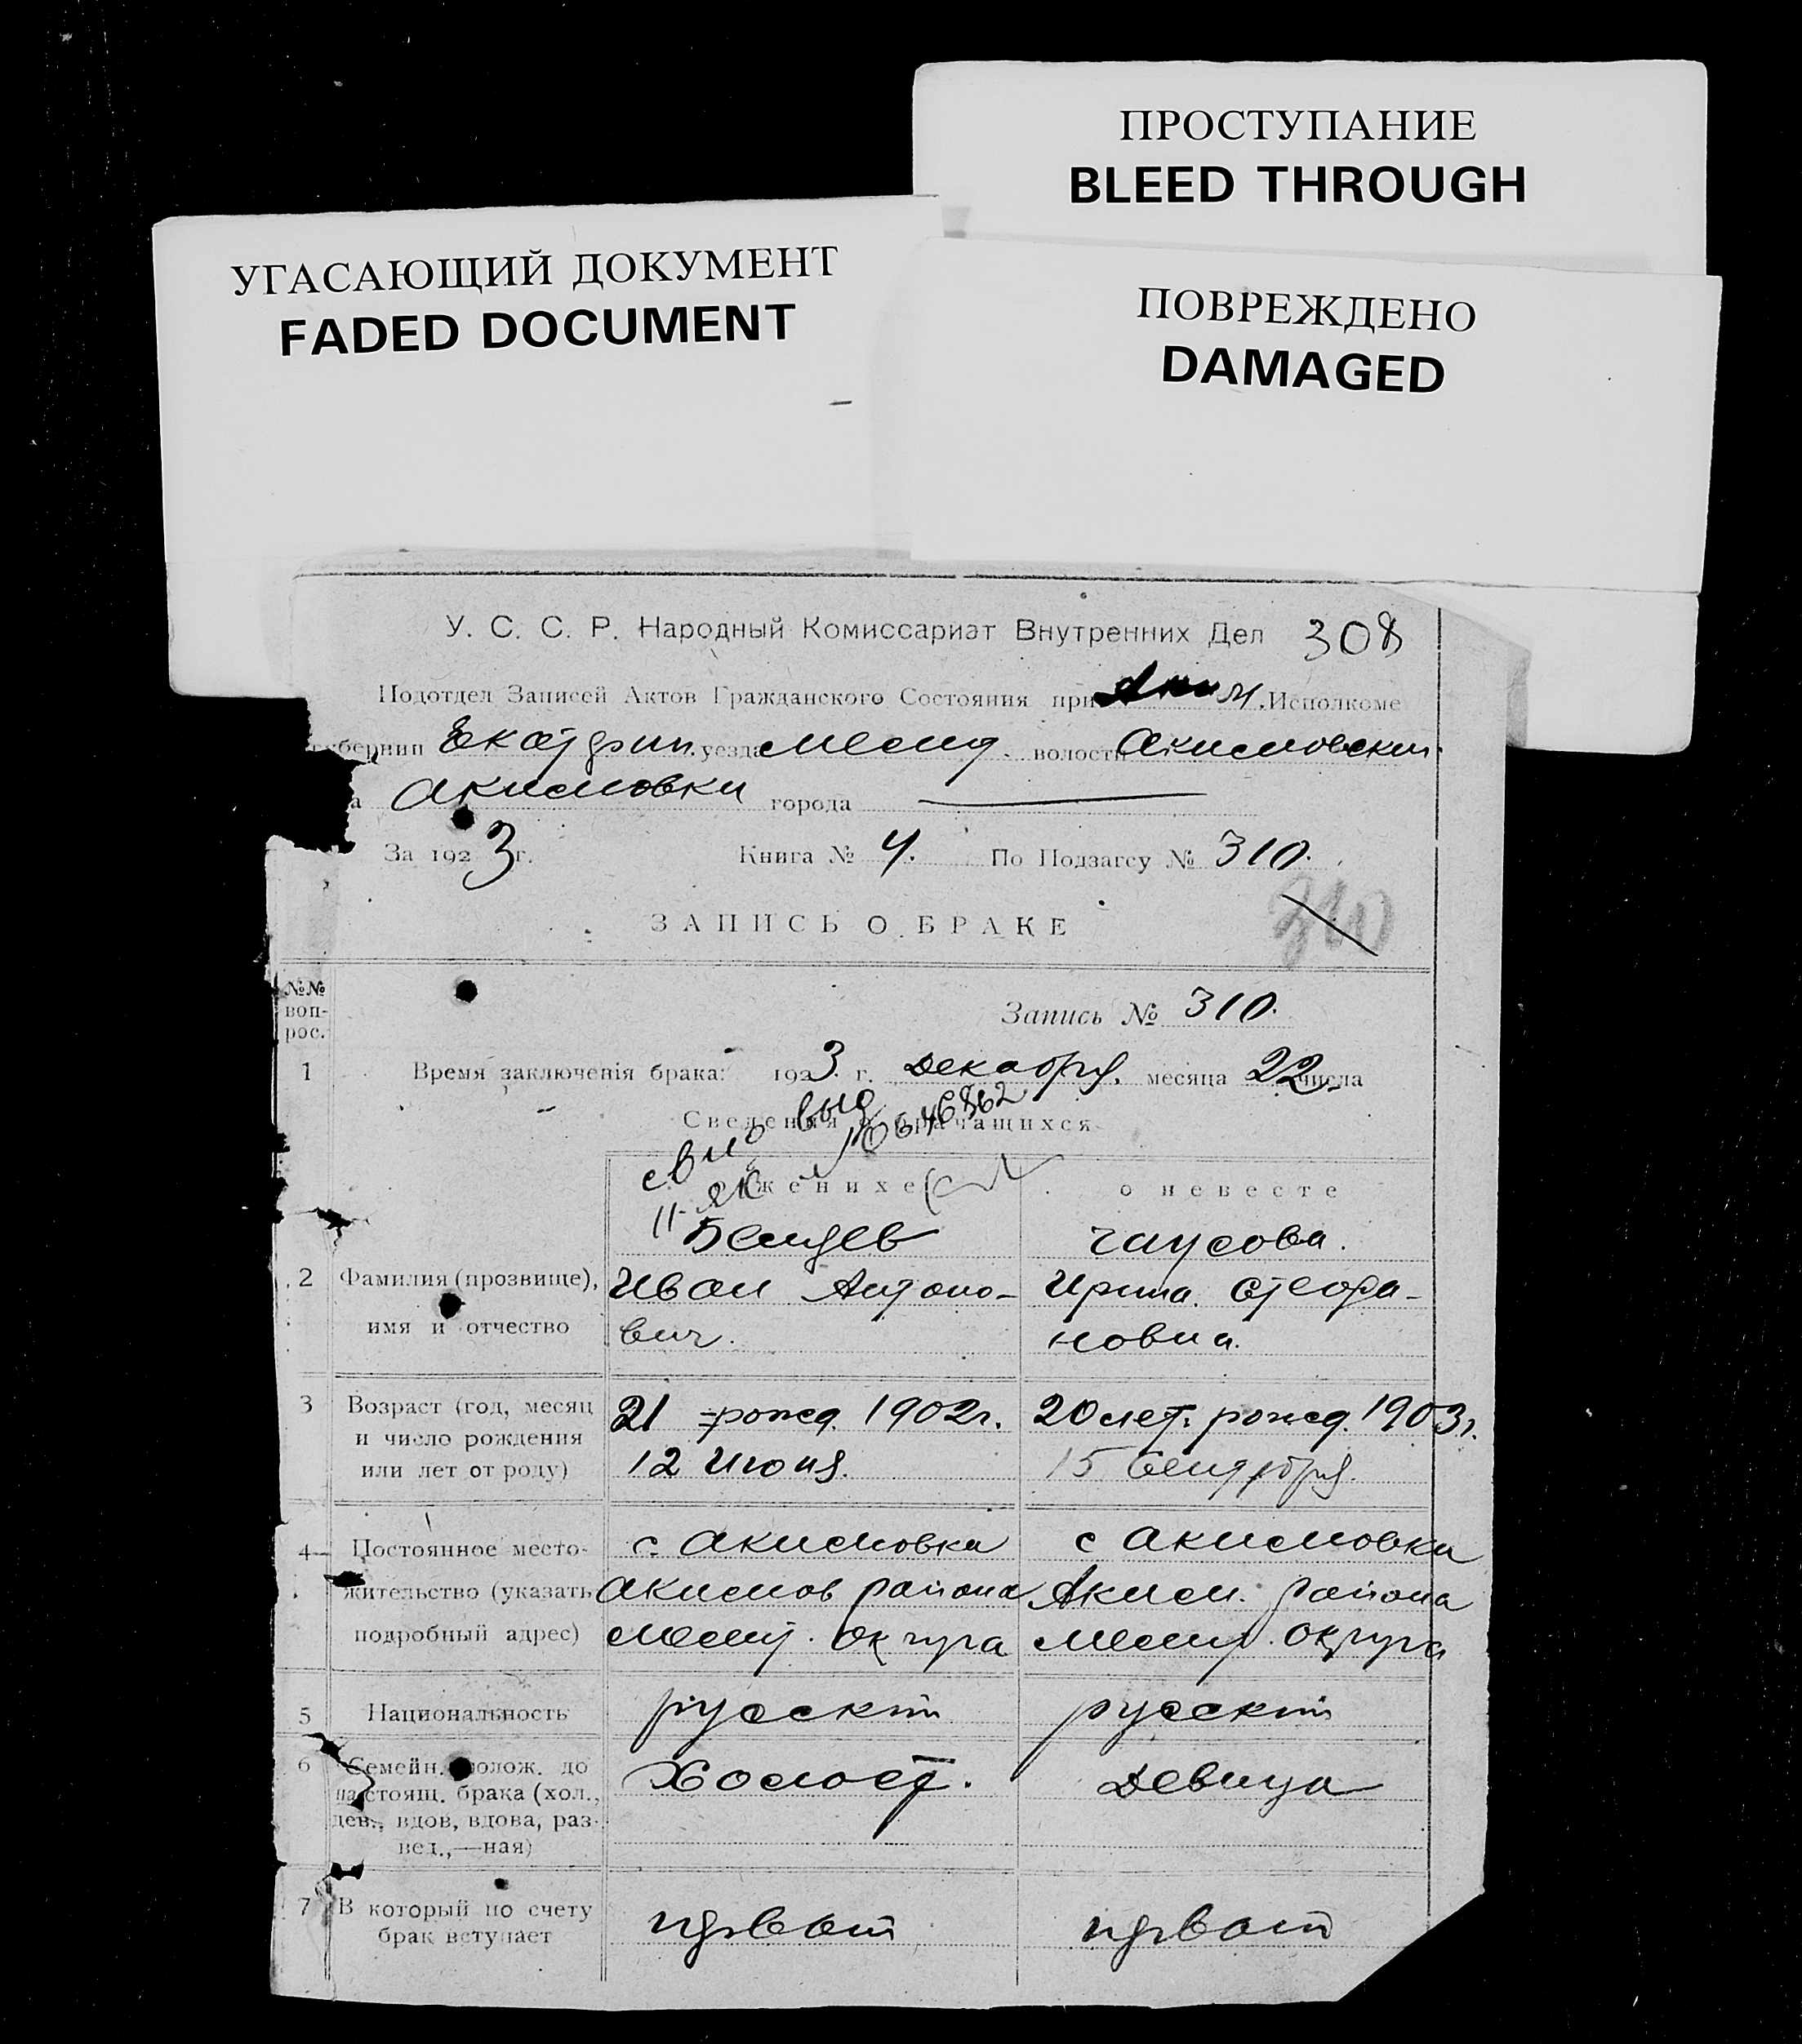 ПРОСТУПАНИЕ
BLEED THROUGH
УГАСАЮЩИЙ ДОКУМЕНТ
FADED DOCUMENT
ПОВРЕЖДЕНО
DAMAGED
У. С. С. Р. Народный Комиссариат Внутренних Дел 308
Подотдел Записей Актов Гражданского Состояния при Аким. Исполкоме
губернии Екатерин. уезда Мелит. волости Акимовской
а Акимовки города
За 1923 г. Книга № 4. По Подзагсу № 310.
310
ЗАПИСЬ О БРАКЕ
№№ вопрос.
Запись № 310.
1 Время заключенія брака: 1923 г. Декабря, месяца 22 числа
Сведения о брачащихся
женихе о невесте
Чаусова.
2 Фамилия (прозвище), Иван Антоно- Ирина Стефа-
имя и отчество вич. новна.
3 Возраст (год, месяц 21 рожд. 1902г. 20 лет. рожд. 1903г.
и число рождения 12 Июня. 15 Сентября.
или лет от роду)
4 Постоянное место- с. Акимовка с Акимовки
жительство (указать Акимов района Аким. района
подробный адрес) Мелит. округа Мелит. округа
5 Национальность русский русский
6 Семейн. полож. до Холост. Девица
настоящ. брака (хол.,
дев., вдов, вдова, раз-
вед.,—ная)
7 В который по счету первый первый
брак вступает